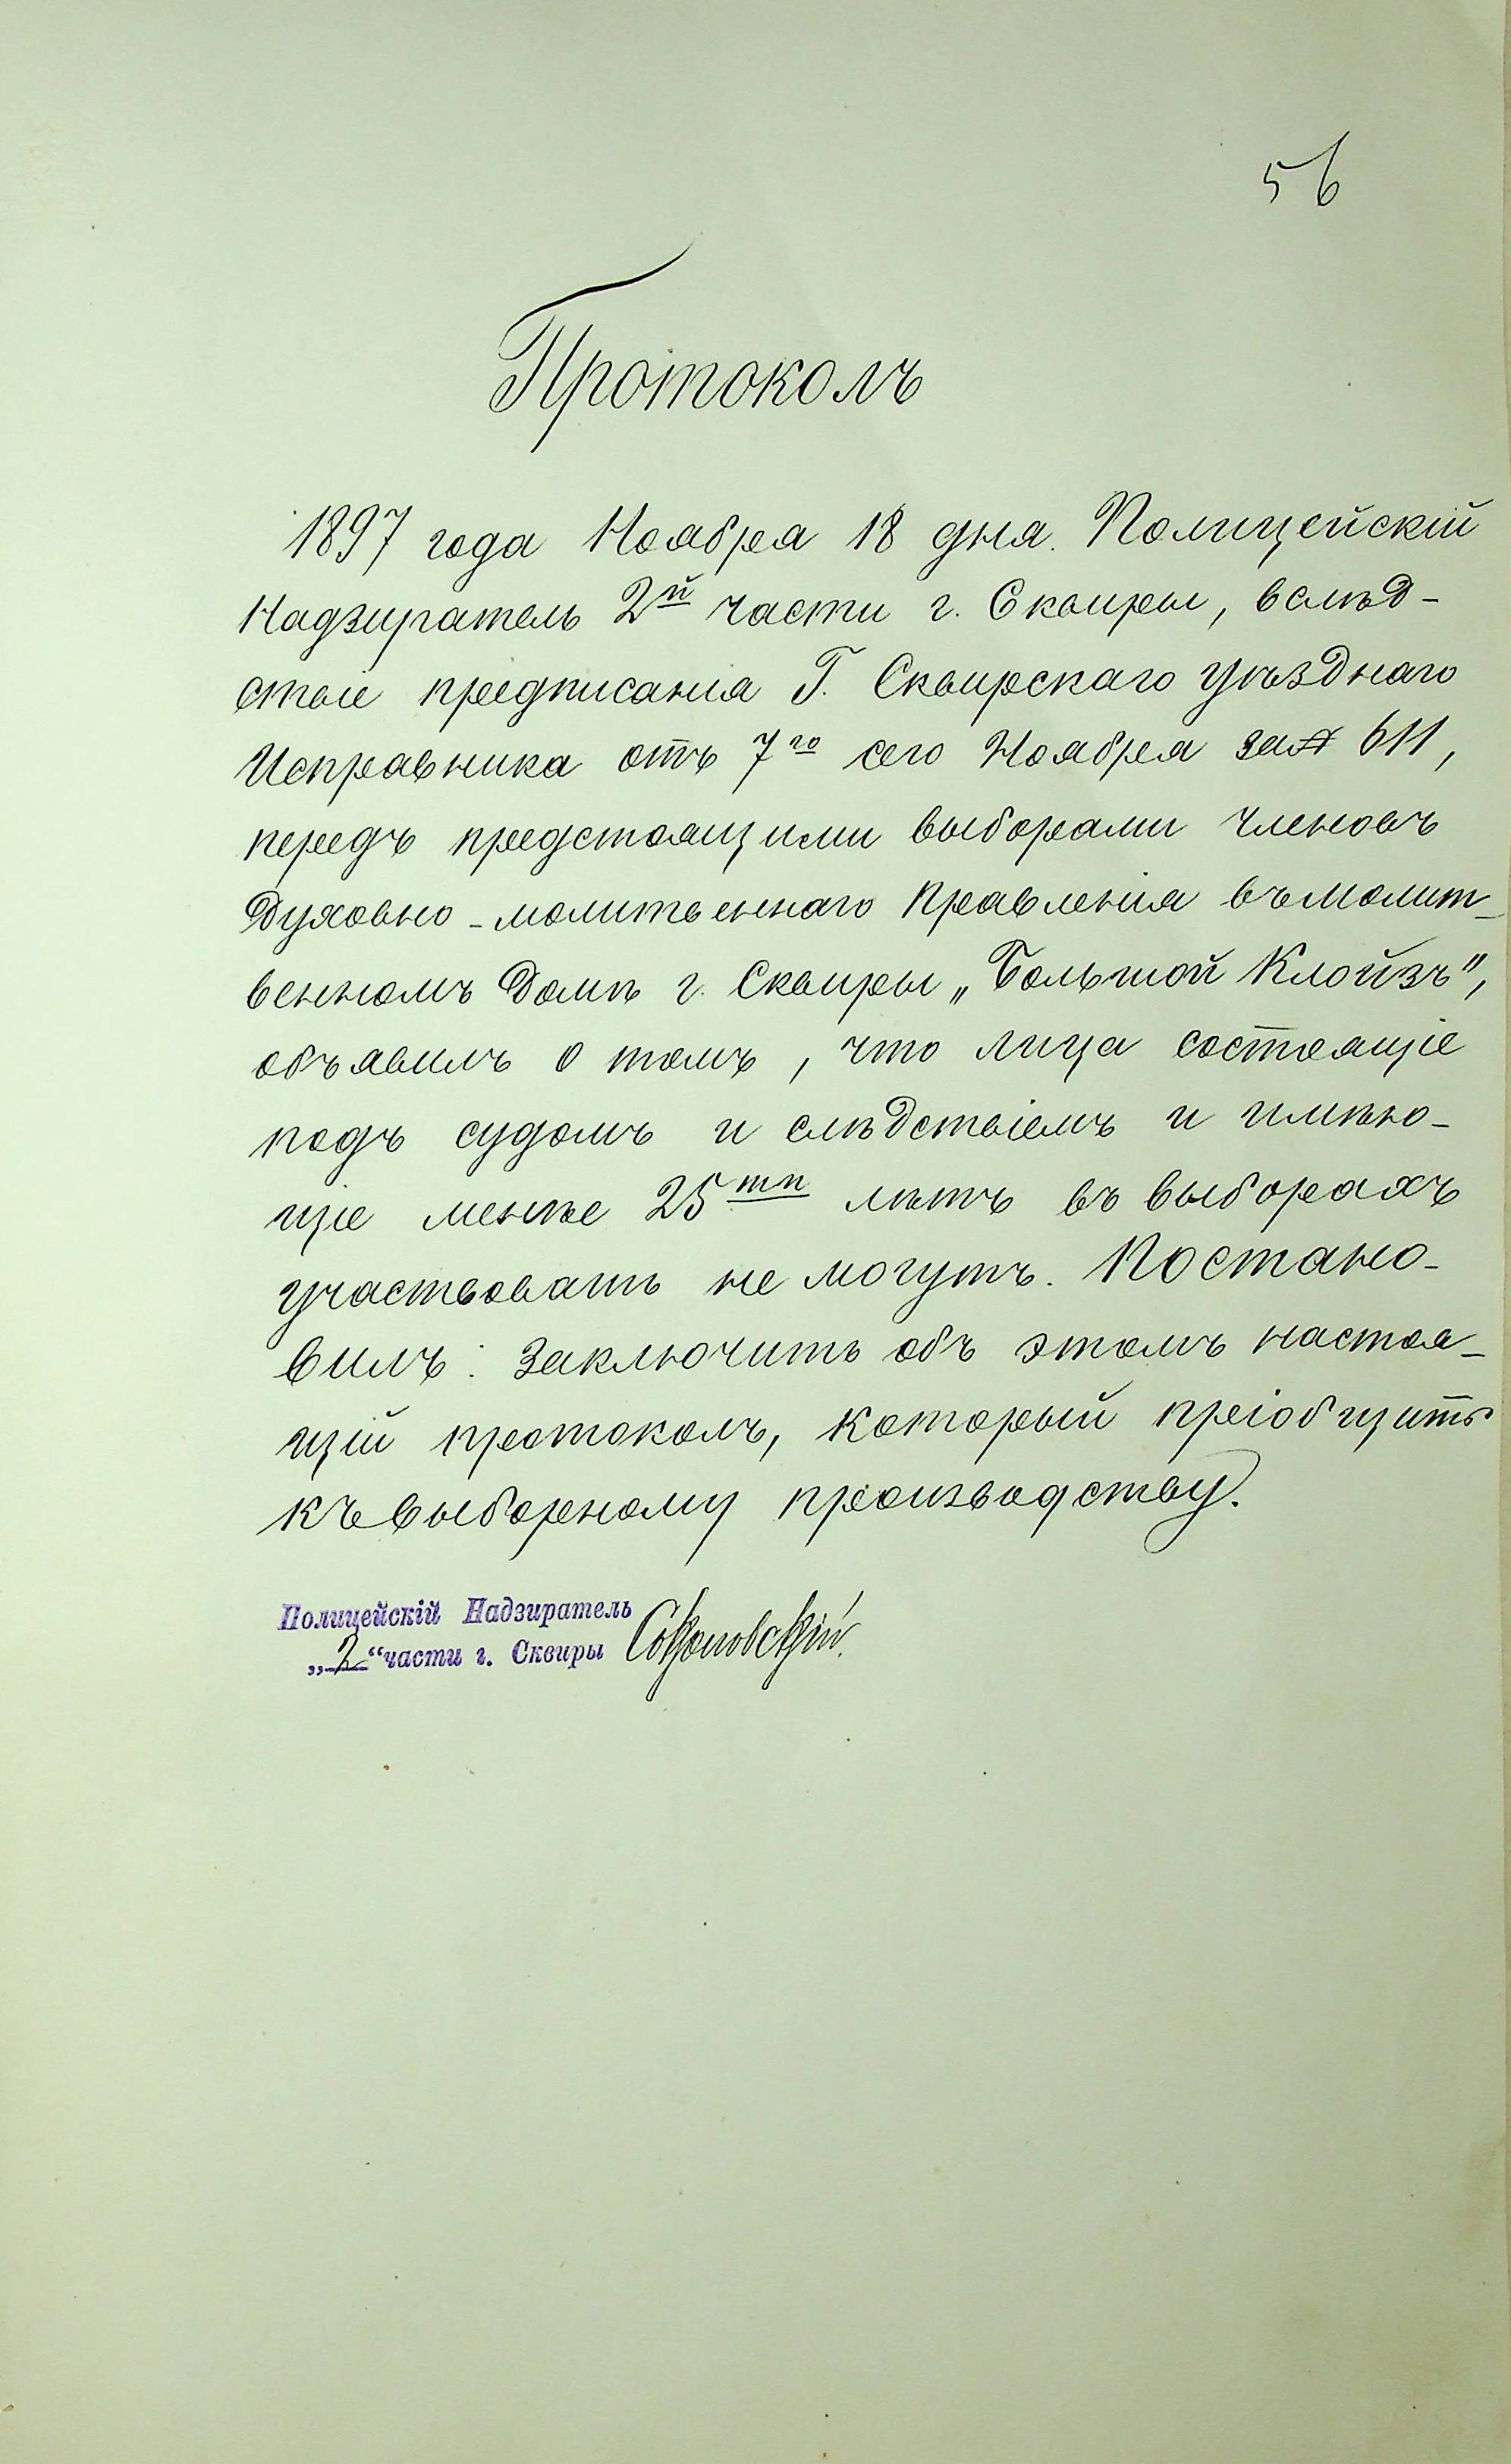 56
Протоколъ
1897 года Ноября 18 дня. Полицейскій
Надзиратель 2й части г. Сквиры, вслѣд-
ствіе предписанія Г. Сквирскаго Уѣзднаго
Исправника отъ 7го сего Ноября за № 611,
передъ предстоящими выборами членовъ
Духовно-молитвеннаго Правленія въ молит-
венномъ Домѣ г. Сквиры „Большой Клойзъ",
объявилъ о томъ, что лица состоящіе
подъ судомъ и слѣдствіемъ и имѣю-
щіе менѣе 25ти лѣтъ въ выборахъ
участвовать не могутъ. Постано-
вилъ: Заключить объ этомъ настоя-
щій протоколъ, который пріобщить
къ выборному производству.
Полицейскій Надзиратель Соколовскій.
„2" части г. Сквиры